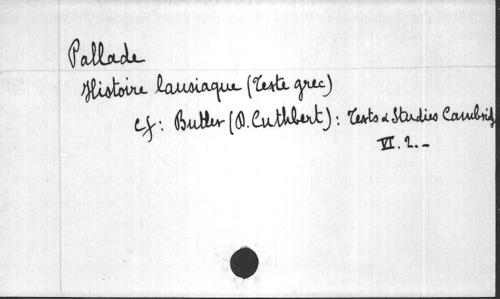 Pallade
Histoire lausiaque (Texte grec)
cf: Butler (D. Cuthbert): Texts & Studies Cambridg
VI. 2. -